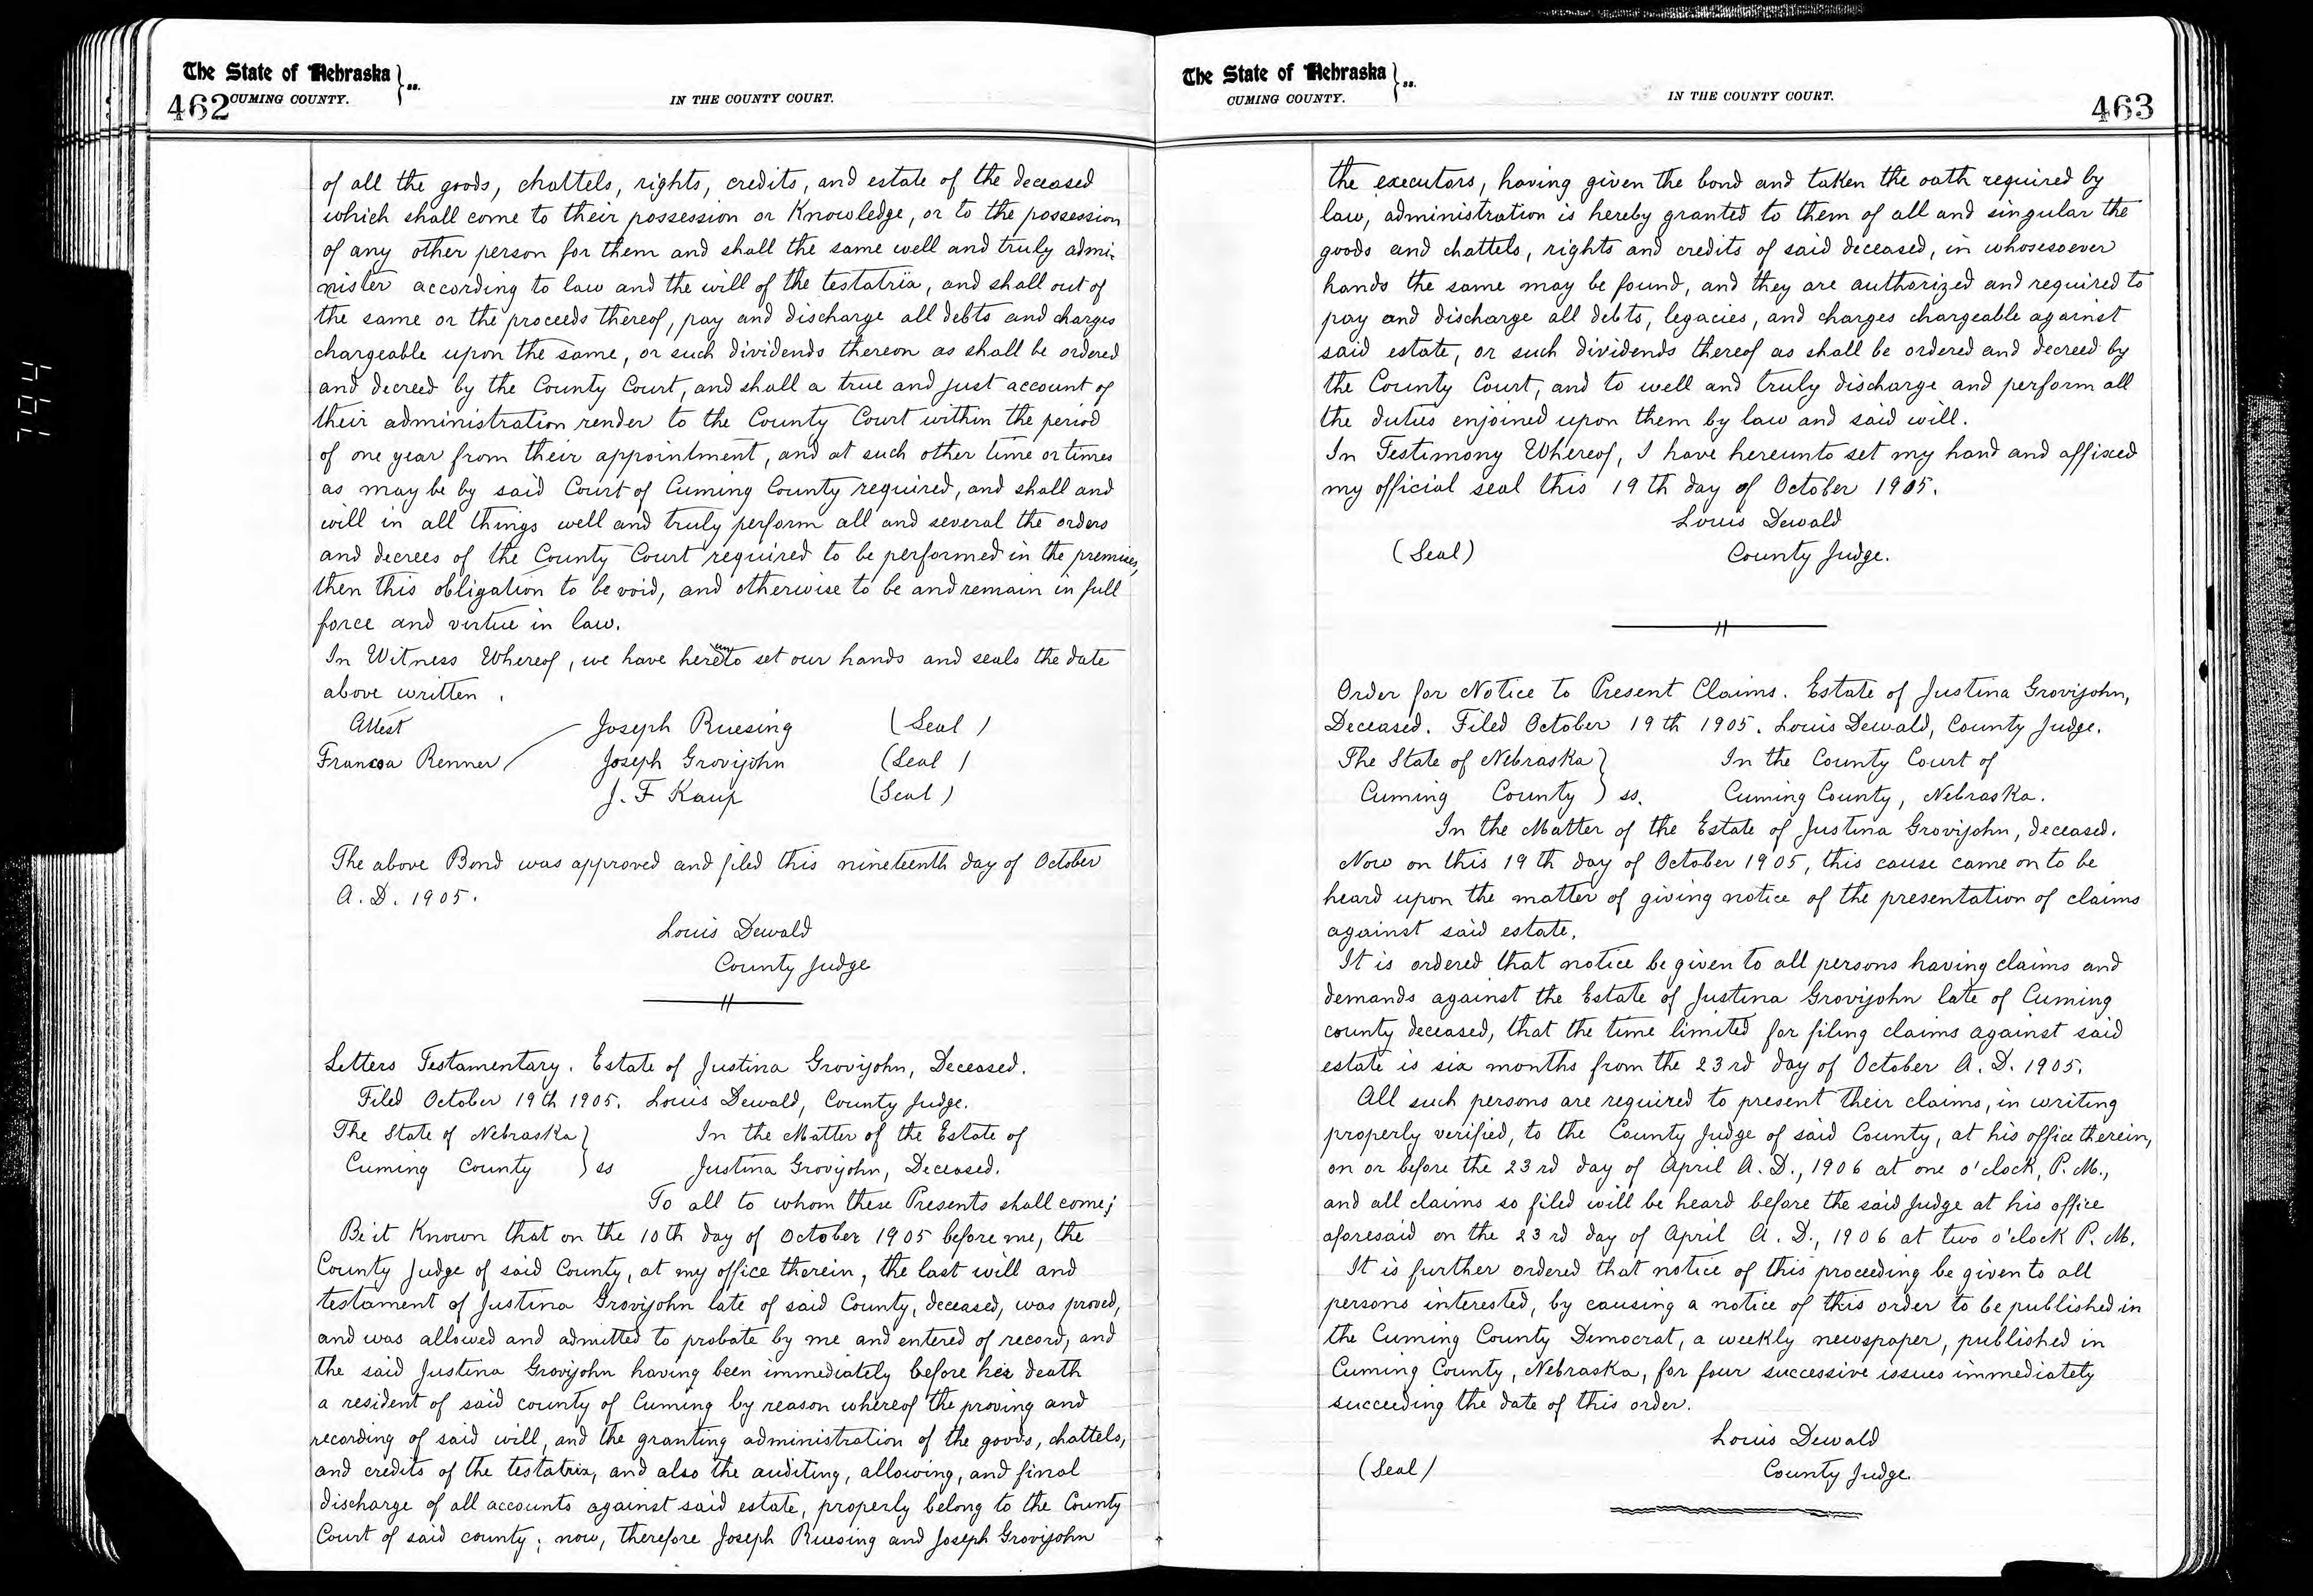 The State of Nebraska } ss.
462 CUMING COUNTY.
IN THE COUNTY COURT.
of all the goods, chattels, rights, credits, and estate of the deceased
which shall come to their possession or Knowledge, or to the possession
of any other person for them and shall the same well and truly admi-
nister according to law and the will of the testatrix, and shall out of
the same or the proceeds thereof, pay and discharge all debts and charges
chargeable upon the same, or such dividends thereon as shall be ordered
and decreed by the County Court, and shall a true and just account of
their administration render to the County Court within the period
of one year from their appointment, and at such other time or times
as may be by said Court of Cuming County required, and shall and
will in all things well and truly perform all and several the orders
and decrees of the County Court required to be performed in the premises,
then this obligation to be void, and otherwise to be and remain in full
force and virtue in law.
In Witness Whereof, we have hereunto set our hands and seals the date
above written.
Attest Joseph Ruesing (Seal)
Renner Joseph Grovijohn (Seal)
J. F Kaup (Seal)
The above Bond was approved and filed this nineteenth day of October
A. D. 1905.
Louis Dewald
County Judge
Letters Testamentary. Estate of Justina Grovijohn, Deceased.
Filed October 19th 1905. Louis Dewald, County Judge.
The State of Nebraska } In the Matter of the Estate of
Cuming County } ss Justina Grovijohn, Deceased.
To all to whom these Presents shall come;
Be it Known that on the 10th day of October 1905 before me, the
County Judge of said County, at my office therein, the last will and
testament of Justina Grovijohn late of said County, deceased, was proved,
and was allowed and admitted to probate by me and entered of record, and
the said Justina Grovijohn having been immediately before her death
a resident of said county of Cuming by reason whereof the proving and
recording of said will, and the granting administration of the goods, chattels,
and credits of the testatrix, and also the auditing, allowing, and final
discharge of all accounts against said estate, properly belong to the County
Court of said county; now, therefore Joseph Ruesing and Joseph Grovijohn
The State of Nebraska } ss.
CUMING COUNTY.
IN THE COUNTY COURT.
463
the executors, having given the bond and taken the oath required by
law, administration is hereby granted to them of all and singular the
goods and chattels, rights and credits of said deceased, in whosesoever
hands the same may be found, and they are authorized and required to
pay and discharge all debts, legacies, and charges chargeable against
said estate, or such dividends thereof as shall be ordered and decreed by
the County Court, and to well and truly discharge and perform all
the duties enjoined upon them by law and said will.
In Testimony Whereof, I have hereunto set my hand and affixed
my official seal this 19th day of October 1905.
Louis Dewald
(Seal) County Judge.
Order for Notice to Present Claims. Estate of Justina Grovijohn,
Deceased. Filed October 19th 1905. Louis Dewald, County Judge.
The State of Nebraska } In the County Court of
Cuming County } ss. Cuming County, Nebraska.
In the Matter of the Estate of Justina Grovijohn, deceased.
Now on this 19th day of October 1905, this cause came on to be
heard upon the matter of giving notice of the presentation of claims
against said estate.
It is ordered that notice be given to all persons having claims and
demands against the Estate of Justina Grovijohn late of Cuming
county deceased, that the time limited for filing claims against said
estate is six months from the 23rd day of October A. D. 1905.
All such persons are required to present their claims, in writing
properly verified, to the County Judge of said County, at his office therein,
on or before the 23rd day of April A. D., 1906 at one o'clock, P. M.,
and all claims so filed will be heard before the said Judge at his office
aforesaid on the 23rd day of April A. D., 1906 at two o'clock P. M.
It is further ordered that notice of this proceeding be given to all
persons interested, by causing a notice of this order to be published in
the Cuming County Democrat, a weekly newspaper, published in
Cuming County, Nebraska, for four successive issues immediately
succeeding the date of this order.
Louis Dewald
(Seal) County Judge.